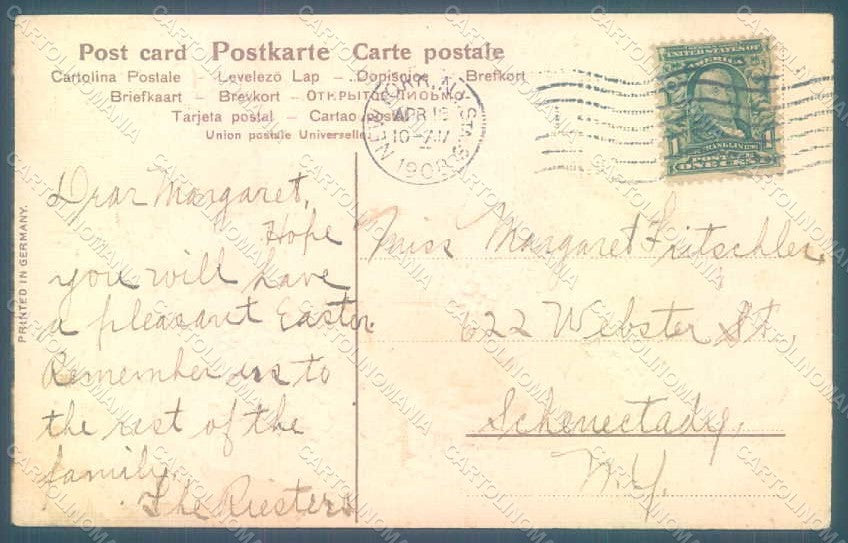 Post card Postkarte Carte postale
Cartolina Postale – Levelező Lap – Dopisnice – Brefkort
Briefkaart – Brevkort – ОТКРЫТОЕ ПИСЬМО
Tarjeta postal – Cartao postal
Union postale Universelle
NEW YORK, N.Y. STA.
APR 15
1908
UNITED STATES OF
AMERICA
FRANKLIN
1 1
POSTAGE
ONE CENT
PRINTED IN GERMANY.
Dear Margaret,
Hope
you will have
a pleasant Easter.
Remember us to
the rest of the
family.
The Riesters
Miss Margaret Fritschler
622 Webster St,
Schenectady,
N.Y.
CARTOLINOMANIA